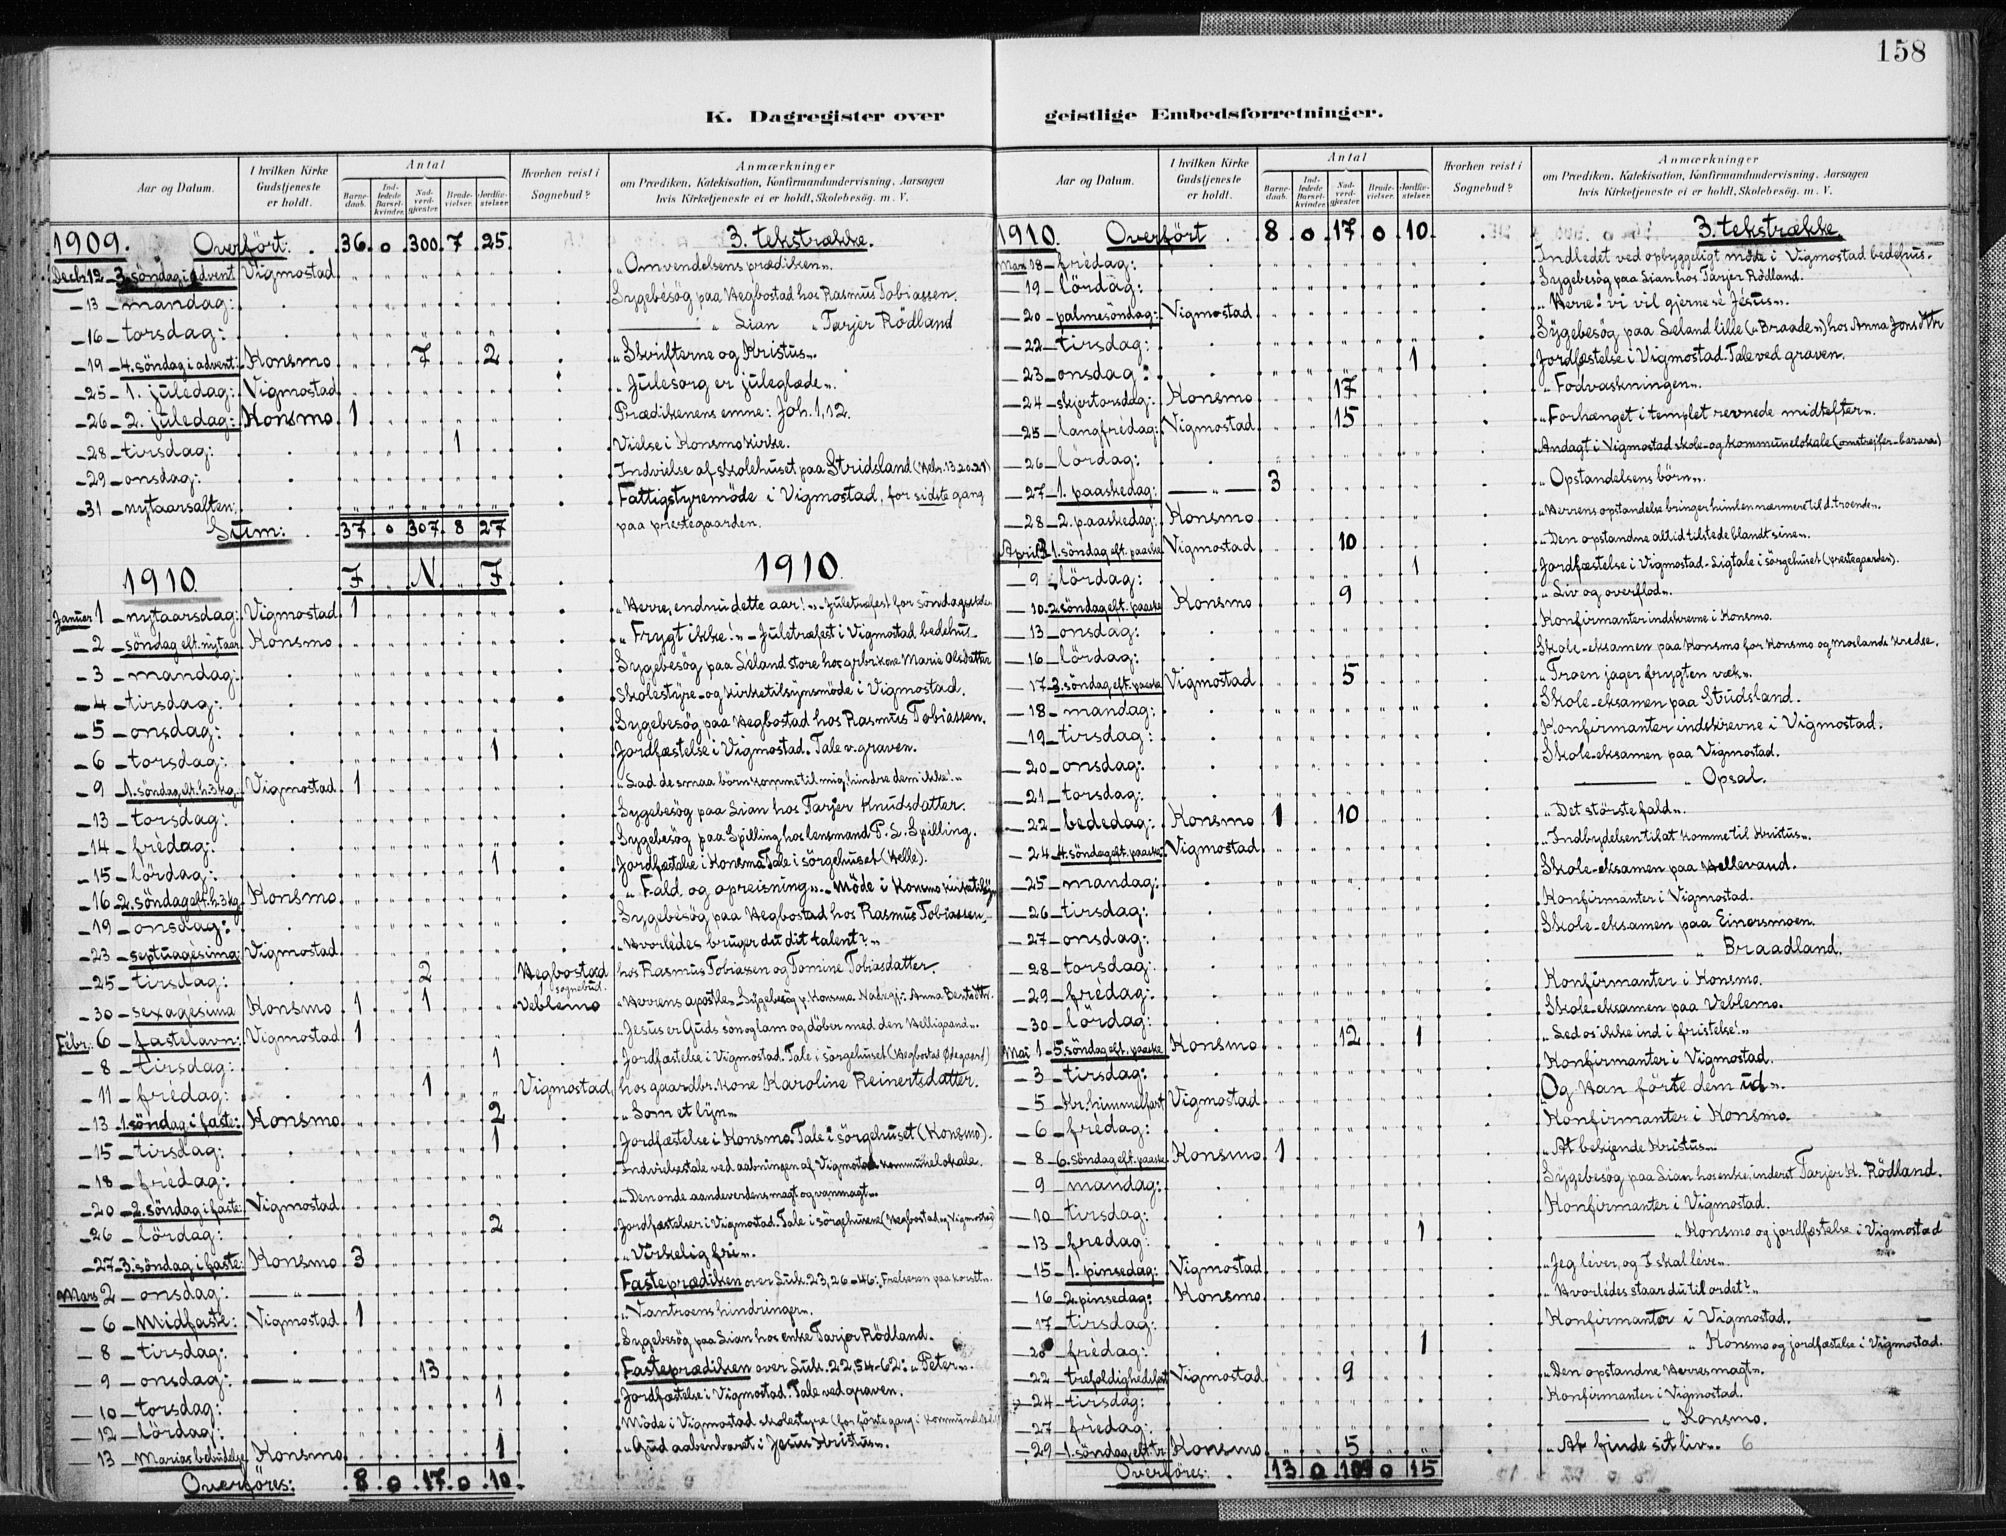 158
K. Dagregister over
geistlige Embedsforretninger.
Aar og Datum.
I hvilken Kirke Gudstjeneste er holdt.
Antal
Barnedaab.
Indledede Barselkvinder.
Nadverdgjester.
Brudevielser.
Jordfæstelser.
Hvorhen reist i Sognebud?
Anmærkninger
om Prædiken, Katekisation, Konfirmandundervisning, Aarsagen
hvis Kirketjeneste ei er holdt, Skolebesög. m. V.
1909. Overfört: 36 0 300 7 25 3. tekstrække.
Decbr. 12 - 3. söndag i advent Vigmostad „Omvendelsens prædiken“.
- 13 - mandag: Sygebesög paa Hegbostad hos Rasmus Tobiassen.
- 16 - torsdag: — „ Lian „ Tarjer Rödland
- 19 - 4. söndag i advent: Konsmo 7 2 „Skrifterne og Kristus“.
- 25 - 1. juledag: Vigmostad „Julesorg er juleglæde“.
- 26 - 2. juledag: Konsmo 1 Prædikenens emne: Joh. 1,12.
- 28 - tirsdag: 1 Vielse i Konsmo kirke.
- 29 - onsdag: Indvielse af skolehuset paa Stridsland (Hebr. 13 20 & 21)
- 31 - nytaarsaften: Fattigstyremöde i Vigmostad, for sidste gang
Sum: 37 0 307 8 27 paa prestegaarden.
1910 F N F 1910
Januar 1 - nytaarsdag: Vigmostad 1 „Herre, endnu dette aar!“ - Juletræfest for söndagsskolen
- 2 - söndag eft. nytaar Konsmo „Frygt ikke!“ - Juletræfest i Vigmostad bedehus.
- 3 - mandag: Sygebesög paa Séland store hos grbr kone Marie Olsdatter
- 4 - tirsdag: Skolestyre- og kirketilsynsmöde i Vigmostad.
- 5 - onsdag: Sygebesög paa Hegbostad hos Rasmus Tobiassen.
- 6 - torsdag: 1 Jordfæstelse i Vigmostad. Tale v. graven.
- 9 - 1. söndag eft. h. 3 kg. Vigmostad 1 „Lad de smaa börn komme til mig, hindre dem ikke!“
- 13 - torsdag: Sygebesög paa Lian hos Tarjer Knudsdatter.
- 14 - frédag: Sygebesög paa Spilling hos lensmand P. L. Spilling.
- 15 - lördag: 1 Jordfæstelse i Konsmo. Tale i sörgehuset (Helle).
- 16 - 2. söndag eft. h. 3 kg Konsmo „Fald og opreisning“. - Möde i Konsmo kirketilsyn
- 19 - onsdag: Sygebesög paa Hegbostad hos Rasmus Tobiassen.
- 23 - septuagésima: Vigmostad „Hvorledes bruger du dit talent?“
- 25 - tirsdag: 2 Hegbostad hos Rasmus Tobiassen og Tomine Tobiasdatter.
- 30 - sexagésima Konsmo 1 1 sognebud. Veblemo „Herrens apostle“. Sygebesög p. Konsmo. Nadvgj.: Anna Bentsdttr.
Febr.: 6 - fastelavn: Vigmostad 1 „Jesus er Guds sön og lam og döber med den Helligaand“.
- 8 - tirsdag: 1 Jordfæstelse i Vigmostad. Tale i sörgehuset (Hegbostad Ødegaard)
- 11 - frédag: 1 Vigmostad, hos gaardbr. kone Karoline Reinertsdatter.
- 13 - 1. söndag i faste: Konsmo 2 „Som et lyn“
- 15 - tirsdag: 1 Jordfæstelse i Konsmo. Tale i sörgehuset (Konsmo).
- 18 - frédag: Indvielsestale ved aabningen af Vigmostad kommunelokale.
- 20 - 2. söndag i faste: Vigmostad „Den onde aandeverdens magt og vanmagt“.
- 26 - lördag: 2 Jordfæstelser i Vigmostad. Tale i sörgehusene (Hegbostad og Vigmostad)
- 27 - 3. söndag i faste: Konsmo 3 „Virkelig fri“.
Mars 2 - onsdag: — „ — Fasteprædiken over Luk. 23, 26-46: „Frelseren paa korset“.
- 6 - Midfaste: Vigmostad 1 „Vantroens hindringer“.
- 8 - tirsdag: Sygebesög paa Lian hos enke Tarjer Rödland.
- 9 - onsdag: — „ — 13 Fasteprædiken over Luk. 22, 54-62: „Peter“.
- 10 - torsdag: 1 Jordfæstelse i Vigmostad. Tale ved graven.
- 12 - lördag: Möde i Vigmostad skolestyre (for förste gang i kommunelok.)
- 13 - Marias bebudelse Konsmo 1 „Gud aabenbaret i Jesus Kristus“.
Overföres: 8 0 17 0 10
Aar og Datum.
I hvilken Kirke Gudstjeneste er holdt.
Antal
Barnedaab.
Indledede Barselkvinder.
Nadverdgjester.
Brudevielser.
Jordfæstelser.
Hvorhen reist i Sognebud?
Anmærkninger
om Prædiken, Katekisation, Konfirmandundervisning, Aarsagen
hvis Kirketjeneste ei er holdt, Skolebesög. m. V.
1910. Overfört 8 0 17 0 10 3. tekstrække
Mars 18 - frédag: Indledet ved opbyggeligt möde i Vigmostad bedehus.
- 19 - lördag: Sygebesög paa Lian hos Tarjer Rödland.
- 20 - palmesöndag: Vigmostad „Herre! vi vil gjerne sé Jésus“.
- 22 - tirsdag: Sygebesög paa Séland lille („Braaden“) hos Anna Jonsdttr
- 23 - onsdag: 1 Jordfæstelse i Vigmostad. Tale ved graven.
- 24 - skjertorsdag: Konsmo 17 „Fodvaskningen“.
- 25 - langfrédag: Vigmostad 15 „Forhænget i templet revnede midtefter“.
- 26 - lördag: Andagt i Vigmostad skole- og kommunelokale (omstreifer-barnas)
- 27 - 1. paaskedag: — „ — 3 „Opstandelsens börn“.
- 28 - 2. paaskedag: Konsmo „Herrens opstandelse bringer himlen nærmere til d. troende“.
April 3 1. söndag eft. paaske Vigmostad 10 „Den opstandne altid tilstede blandt sine“.
- 9 - lördag: 1 Jordfæstelse i Vigmostad - Ligtale i sörgehuset (prestegaarden).
- 10 - 2. söndag eft. paaske Konsmo 9 „Liv og overflod“.
- 13 - onsdag: Konfirmanter indskrevne i Konsmo.
- 16 - lördag: Skole-eksamen paa Konsmo for Konsmo og Moslands kredse.
- 17 - 3. söndag eft. paaske Vigmostad 5 „Troen jager frygten væk“.
- 18 - mandag: Skole-eksamen paa Stridsland.
- 19 - tirsdag: Konfirmanter indskrevne i Vigmostad.
- 20 - onsdag: Skole-eksamen paa Vigmostad.
- 21 - torsdag: — „ Opsal.
- 22 - bededag: Konsmo 1 10 „Det störste fald“.
- 24 - 4. söndag eft. paaske: Vigmostad „Indbydelsen til at komme til Kristus“.
- 25 - mandag: Skole-eksamen paa Hellevand.
- 26 - tirsdag: Konfirmanter i Vigmostad.
- 27 - onsdag: Skole-eksamen paa Einersmoen.
- 28 - torsdag: — „ Braadland.
- 29 - frédag: Konfirmanter i Konsmo.
- 30 - lördag: Skole-eksamen paa Veblemo.
Mai 1 - 5. söndag eft. paaske Konsmo 12 1 „Led os ikke ind i fristelse!“
- 3 - tirsdag: Konfirmanter i Vigmostad.
- 5 - Kr. himmelfart Vigmostad „Og Han förte dem ud“.
- 6 - frédag: Konfirmanter i Konsmo.
- 8 - 6. söndag eft. paaske Konsmo 1 „At bekjende Kristus“.
- 9 - mandag: Sygebesög paa Lian hos enke, inderst Tarjer K. Rödland.
- 10 - tirsdag: Konfirmanter i Vigmostad.
- 13 - fredag: 1 — „ Konsmo og jordfæstelse i Vigmostad
- 15 - 1. pinsedag: Vigmostad „Jeg lever, og I skal leve“.
- 16 - 2. pinsedag: Konsmo „Hvorledes staar du til ordet?“
- 17 - tirsdag: Konfirmanter i Vigmostad.
- 20 - frédag: 1 — „ Konsmo og jordfæstelse i Vigmostad.
- 22 - trefoldighedsfest Vigmostad 9 „Den opstandne Herres magt“.
- 24 - tirsdag: Konfirmanter i Vigmostad.
- 27 - frédag: — „ Konsmo.
- 29 - 1. söndag eft. tr. Konsmo 5 „At finde sit liv“. 6
Overföres: 13 0 109 0 15